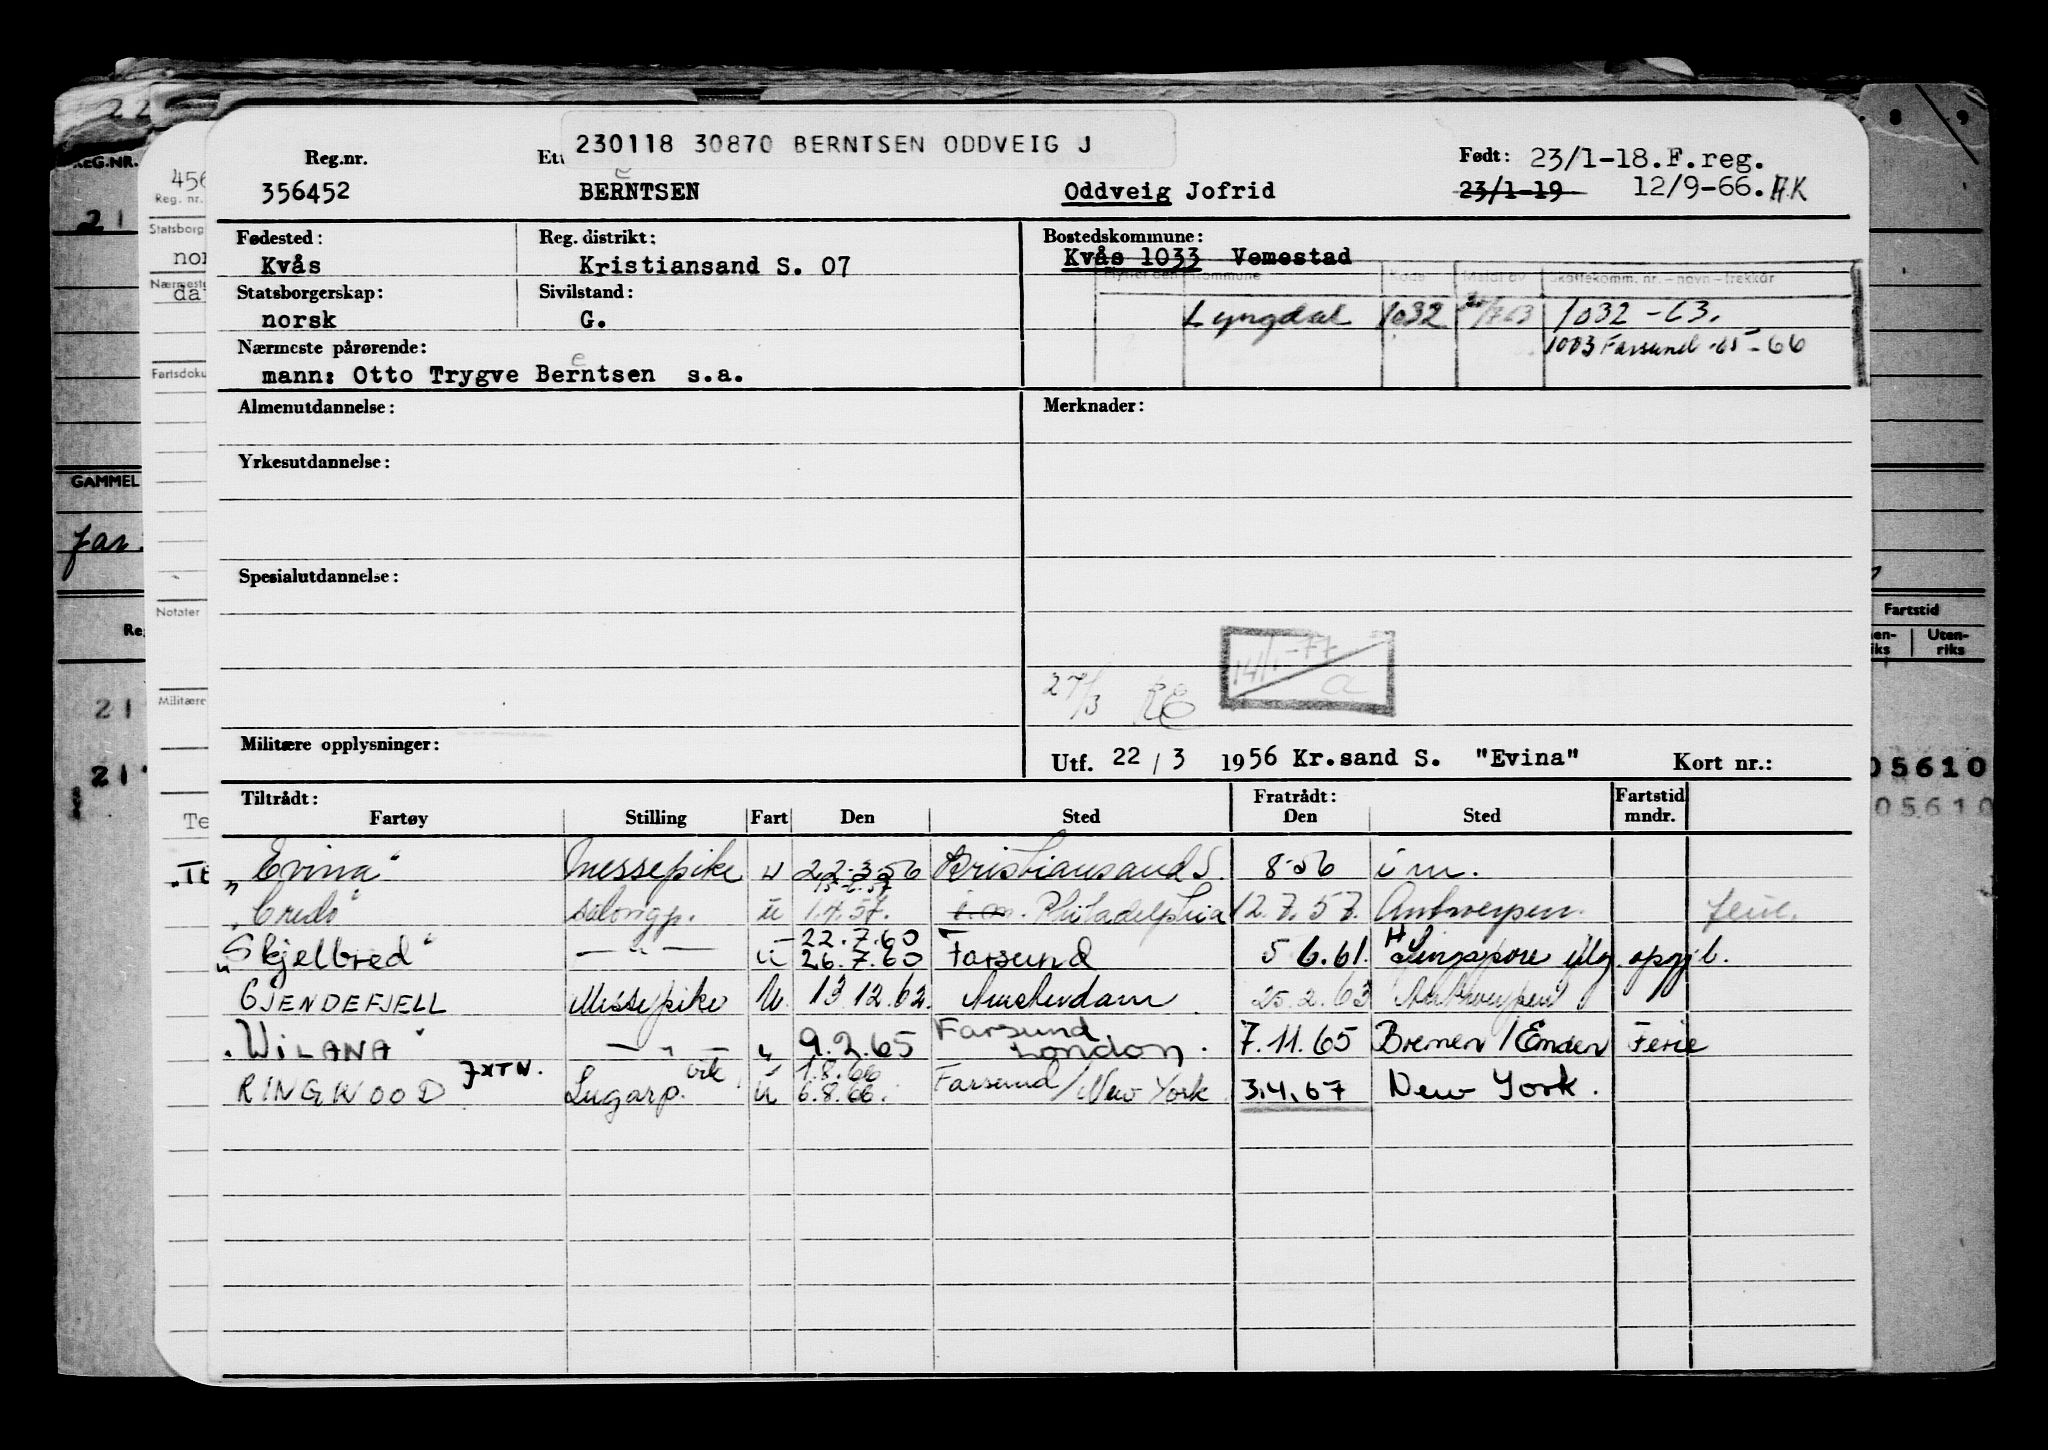 230118 30870 BERNTSEN ODDVEIG J
Reg.nr.
Født: 23/1-18.F.reg.
356452 BERNTSEN Oddveig Jofrid 23/1-19 12/9-66.
Fødested: Reg. distrikt: Bostedskommune:
Kvås Kristiansand S. 07 Kvås 1033 Vemestad
Flyttet den Kommune Kode Meldt av Skattekomm. nr. - navn - trekkår
Statsborgerskap: Sivilstand:
norsk G. Lyngdal 1032 1032 - 63.
Nærmeste pårørende: 1003 Farsund -65 - 66
mann: Otto Trygve Berntsen s.a.
Almenutdannelse: Merknader:
Yrkesutdannelse:
Spesialutdannelse:
14/1-77
a
27/3
Militære opplysninger:
Utf. 22 / 3 1956 Kr.sand S. "Evina" Kort nr.:
Tiltrådt: Fratrådt: Fartstid
Fartøy Stilling Fart Den Sted Den Sted mndr.
"Evina" messepike u 22.3.56 Kristiansand S. 8-56 i m.
"Credo" salongp. u 1.4.57. i.m. Philadelphia 12.7.57. Antwerpen. ferie.
22.7.60
"Skjelbred" — " — u 26.7.60 Farsund 5 6.61. Singapore opgj b.
GJENDEFJELL Messepike U. 13 12.62. Amsterdam 25.2.63 Antwerpen
"WILANA" — " — " 9.2.65 Farsund London. 7.11.65 Bremen / Emden Ferie
1.8.66
RINGWOOD JXTN. Lugarp. vik u 6.8.66. Farsund / New York 3.4.67 New York.
REG.NR.
21
GAMMEL
far.
21
21
456
Reg. nr.
Statsborg
nor
Nærmeste
da
Fartsdoku
Notater
Militære
Te
8 9
Fartstid
Uten-
riks
05610
05610